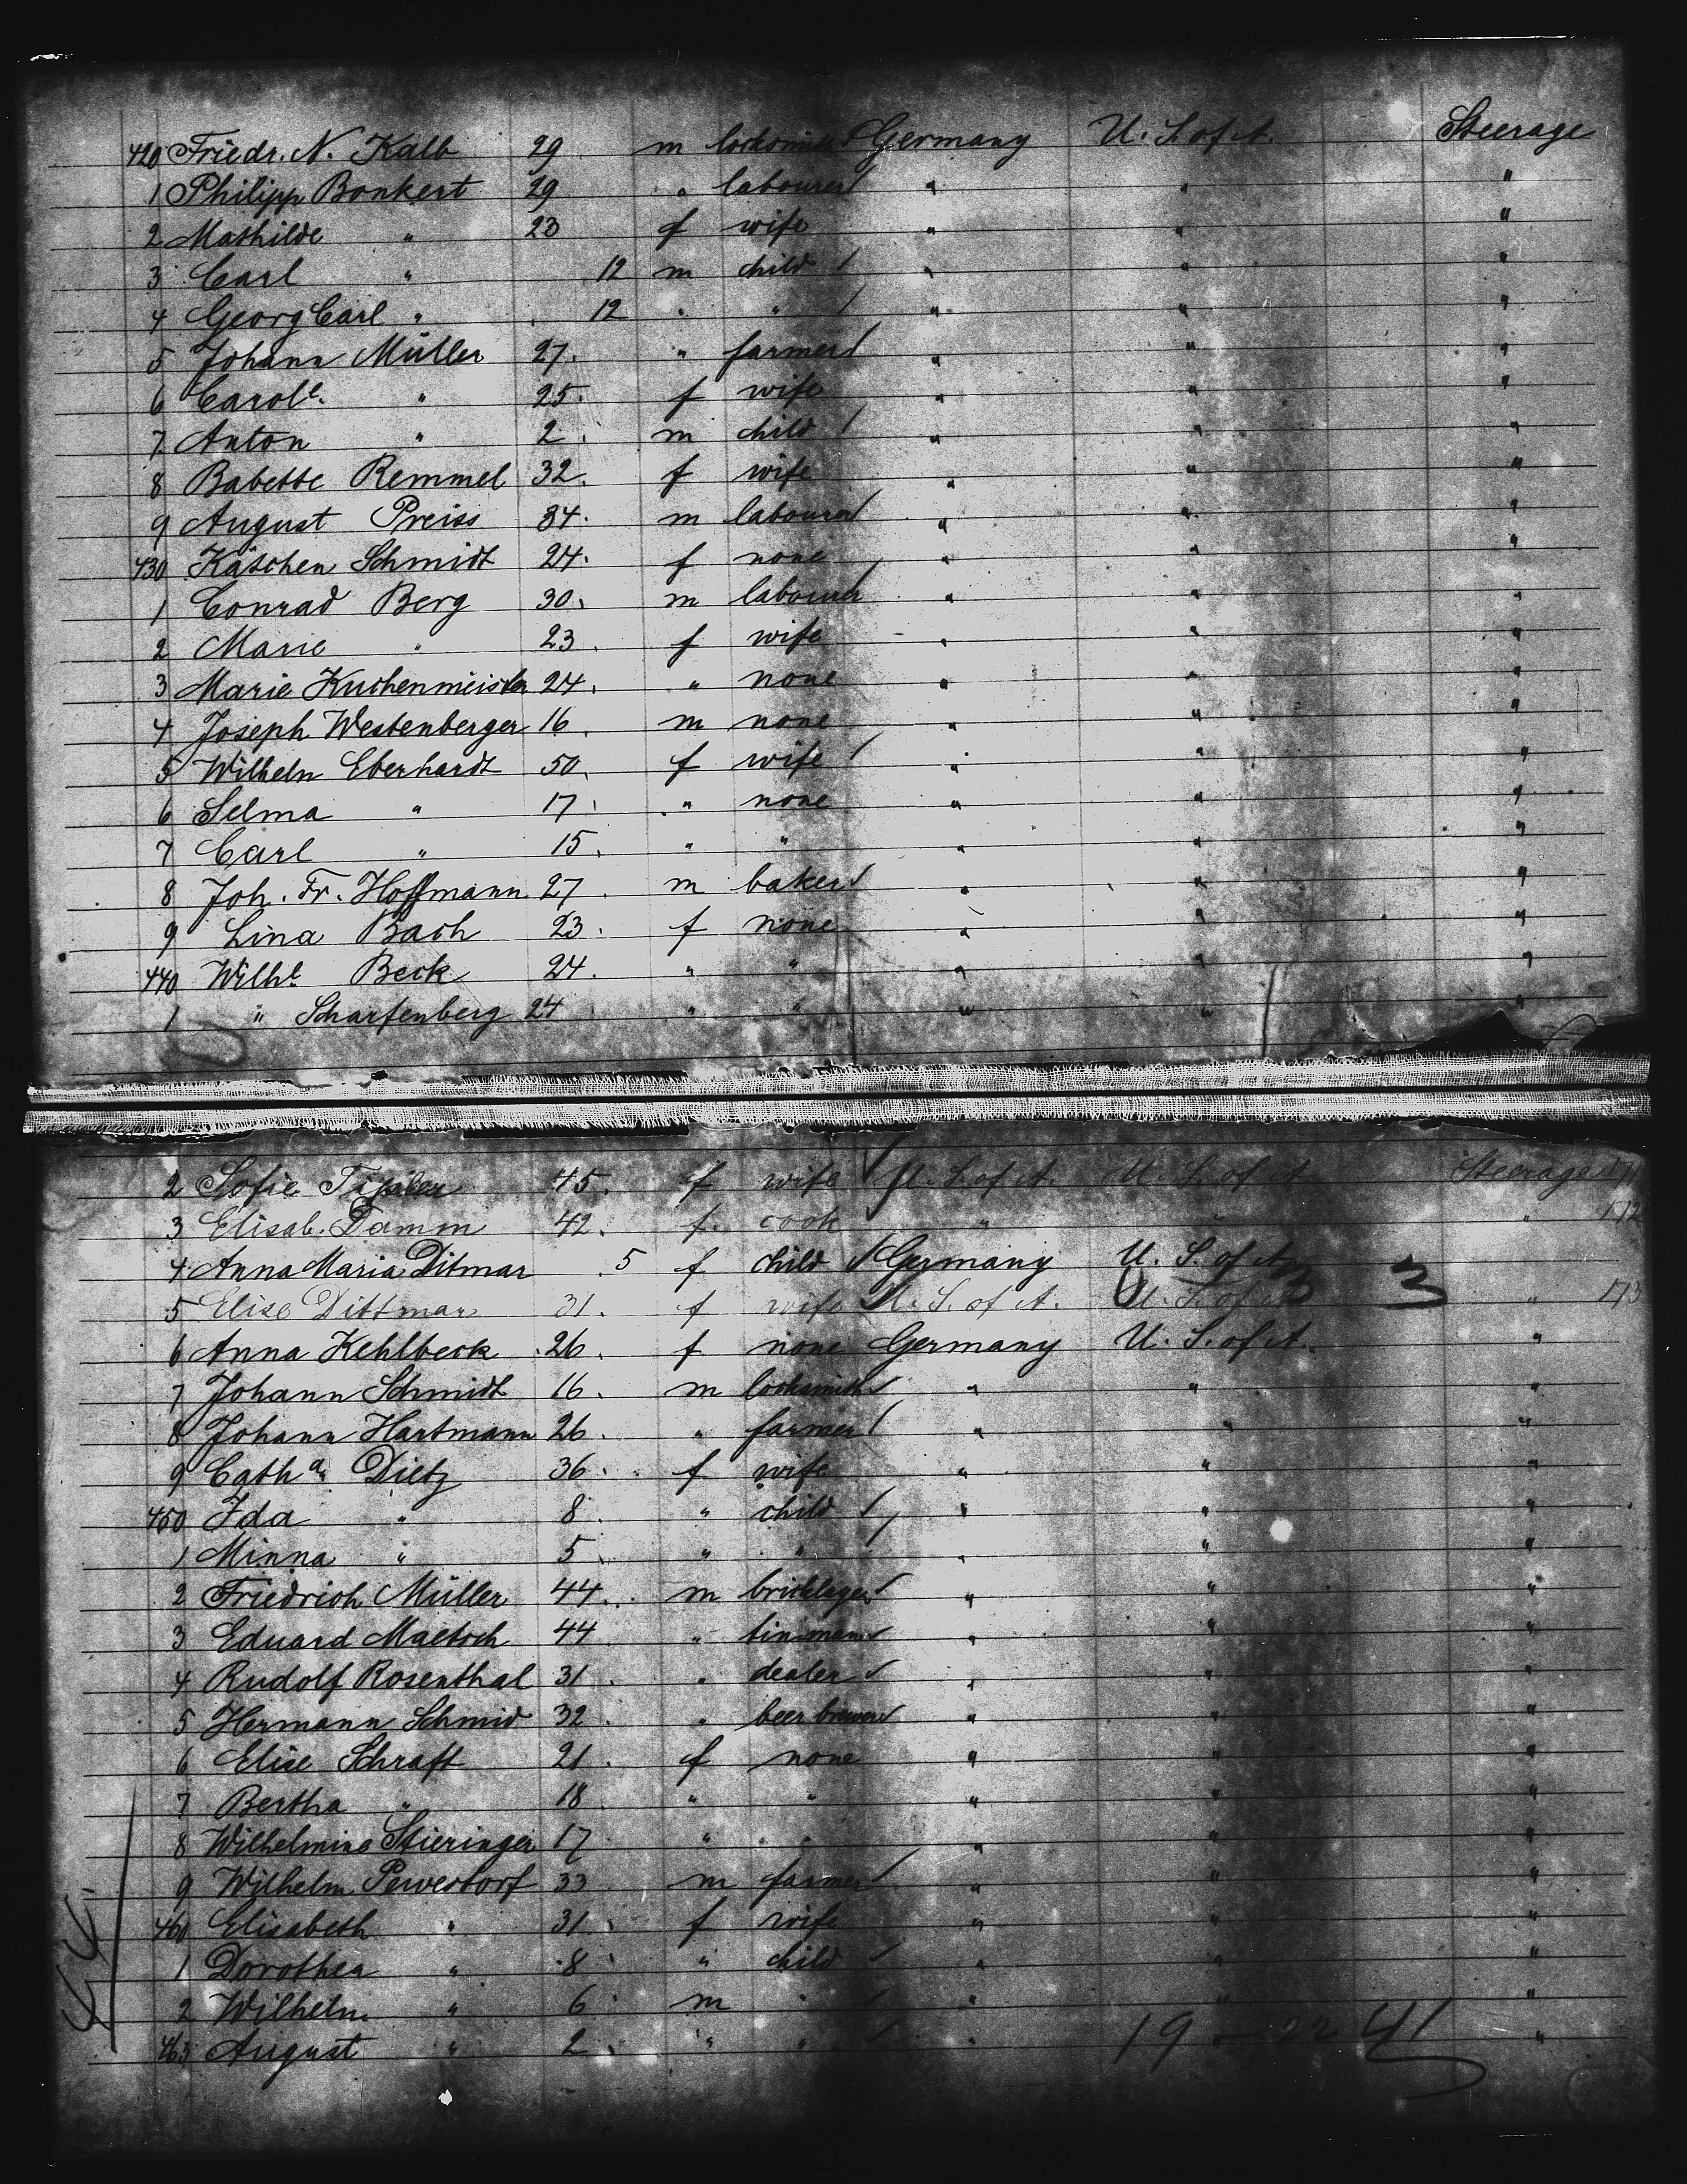 420 Friedr. N. Kalb 29 m locksmith Germany U. S. of A. Steerage
1 Philipp Bonkert 29 " labourer " " "
2 Mathilde " 23 f wife " " "
3 Carl " 12 m child " " "
4 Georg Carl " 12 " " " " "
5 Johann Müller 27. " farmer " " "
6 Carole. " 25. f wife " " "
7 Anton " 2. m child " " "
8 Babette Remmel 32. f wife " " "
9 August Preiss 34. m labourer " " "
430 Käthchen Schmidt 24. f none " " "
1 Conrad Berg 30. m labourer " " "
2 Marie " 23. f wife " " "
3 Marie Kuchenmeister 24. " none " " "
4 Joseph Westenberger 16. m none " " "
5 Wilheln Eberhardt 50. f wife " " "
6 Selma " 17. " none " " "
7 Carl " 15. " " " " "
8 Joh. Fr. Hoffmann 27. m baker " " "
9 Lina Bach 23. f none " " "
440 Wilhe. Beck 24. " " " " "
1 " Scharfenberg 24 " " " " "
2 Sofie 45. f wife U. S. of A. U. S. of A. Steerage 171
3 Elisab. Damm 42. f. cook " " " 172
4 Anna Maria Ditmar 5 f child Germany U. S. of A.
5 Elise Dittmar 31. f wife U. S. of A. U. S. of A. 3 " 173
6 Anna Kehlbeck 26. f none Germany U. S. of A. "
7 Johann Schmidt 16. m locksmith " " "
8 Johann Hartmann 26. " farmer " " "
9 Catha. Dietz 36. f wife " " "
450 Ida " 8. " child " " "
1 Minna " 5 " " " " "
2 Friedrich Müller 44. m bricklayer " " "
3 Eduard Maetoch 44 " tinman " " "
4 Rudolf Rosenthal 31. " dealer " " "
5 Hermann Schmid 32. " beer brewer " " "
6 Elise Schraft 21. f none " " "
7 Bertha " 18. " " " " "
8 Wilhelmine Stieringer 17 " " " " "
9 Wilhelm Pewestorf 33 m farmer " " "
460 Elisabeth " 31. f wife " " "
1 Dorothea " 8. " child " " "
2 Wilhelm " 6. m " " " "
463 August " 2. " " " 19 - 22 41 "